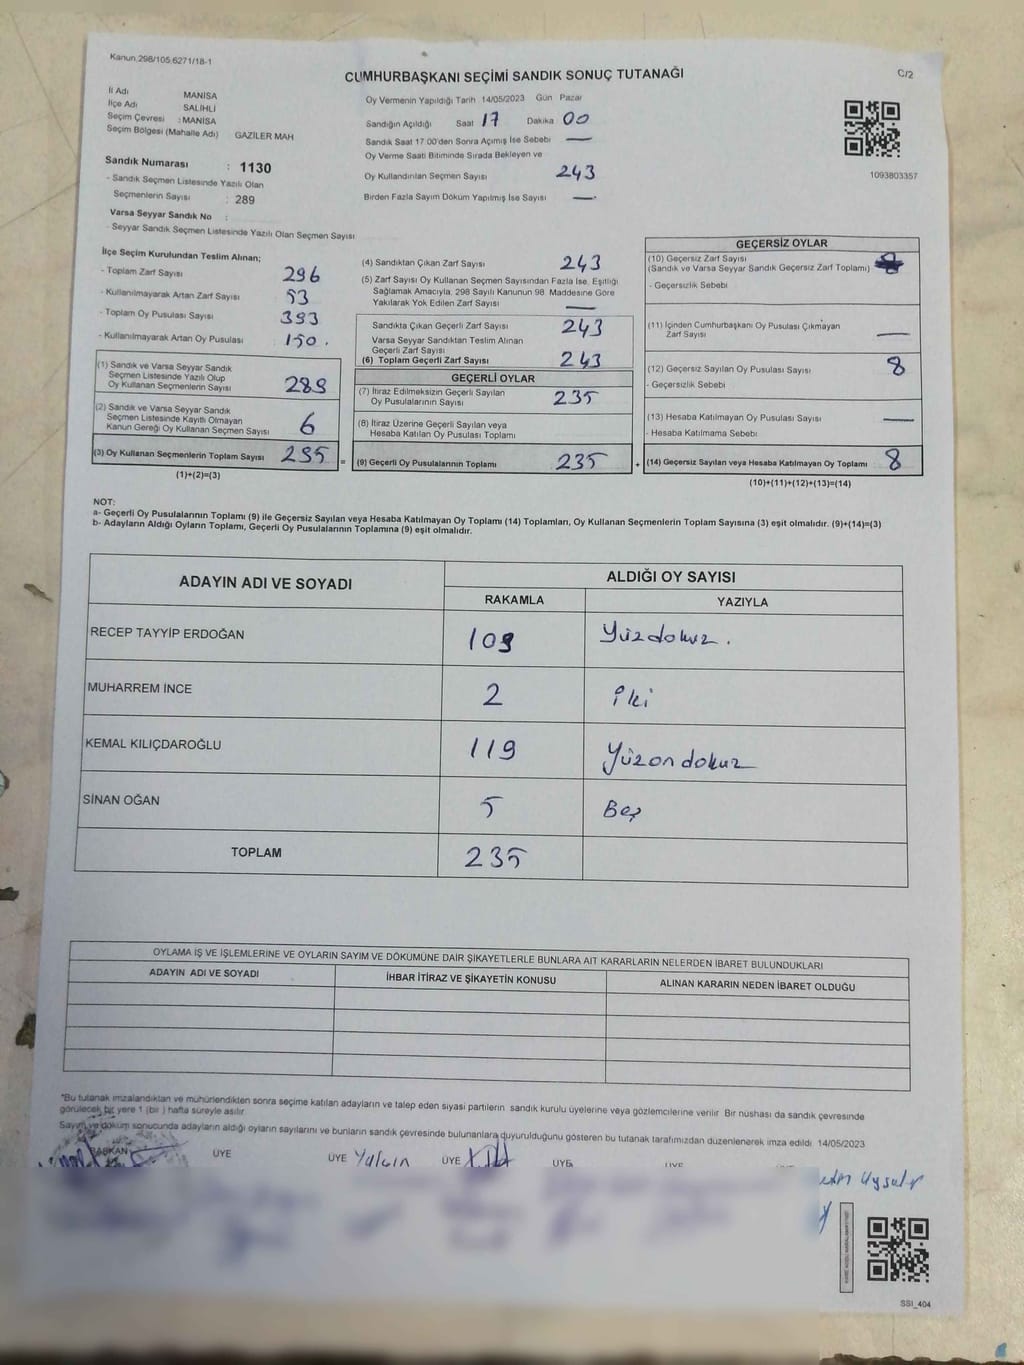 Kanun,298/105,6271/18-1
CUMHURBAŞKANI SEÇİMİ SANDIK SONUÇ TUTANAĞI
C/2
İl Adı MANİSA
İlçe Adı SALİHLİ
Seçim Çevresi : MANİSA
Seçim Bölgesi (Mahalle Adı) GAZİLER MAH
Sandık Numarası : 1130
- Sandık Seçmen Listesinde Yazılı Olan
Seçmenlerin Sayısı : 289
Varsa Seyyar Sandık No :
- Seyyar Sandık Seçmen Listesinde Yazılı Olan Seçmen Sayısı
Oy Vermenin Yapıldığı Tarih 14/05/2023 Gün Pazar
Sandığın Açıldığı Saat 17 Dakika 00
Sandık Saat 17:00'den Sonra Açımış İse Sebebi —
Oy Verme Saati Bitiminde Sırada Bekleyen ve
Oy Kullandırılan Seçmen Sayısı 243
Birden Fazla Sayım Döküm Yapılmış İse Sayısı —
1093803357
İlçe Seçim Kurulundan Teslim Alınan;
- Toplam Zarf Sayısı 296
- Kullanılmayarak Artan Zarf Sayısı 53
- Toplam Oy Pusulası Sayısı 393
- Kullanılmayarak Artan Oy Pusulası 150.
(1) Sandık ve Varsa Seyyar Sandık
Seçmen Listesinde Yazılı Olup
Oy Kullanan Seçmenlerin Sayısı 289
(2) Sandık ve Varsa Seyyar Sandık
Seçmen Listesinde Kayıtlı Olmayan
Kanun Gereği Oy Kullanan Seçmen Sayısı 6
(3) Oy Kullanan Seçmenlerin Toplam Sayısı 295 =
(1)+(2)=(3)
(4) Sandıktan Çıkan Zarf Sayısı 243
(5) Zarf Sayısı Oy Kullanan Seçmen Sayısından Fazla İse, Eşitliği
Sağlamak Amacıyla, 298 Sayılı Kanunun 98. Maddesine Göre
Yakılarak Yok Edilen Zarf Sayısı —
Sandıkta Çıkan Geçerli Zarf Sayısı 243
Varsa Seyyar Sandıktan Teslim Alınan
Geçerli Zarf Sayısı
(6) Toplam Geçerli Zarf Sayısı 243
GEÇERLİ OYLAR
(7) İtiraz Edilmeksizin Geçerli Sayılan
Oy Pusulalarının Sayısı 235
(8) İtiraz Üzerine Geçerli Sayılan veya
Hesaba Katılan Oy Pusulası Toplamı
(9) Geçerli Oy Pusulalarının Toplamı 235 +
GEÇERSİZ OYLAR
(10) Geçersiz Zarf Sayısı
(Sandık ve Varsa Seyyar Sandık Geçersiz Zarf Toplamı)
- Geçersizlik Sebebi
(11) İçinden Cumhurbaşkanı Oy Pusulası Çıkmayan
Zarf Sayısı —
(12) Geçersiz Sayılan Oy Pusulası Sayısı 8
- Geçersizlik Sebebi
(13) Hesaba Katılmayan Oy Pusulası Sayısı —
- Hesaba Katılmama Sebebi
(14) Geçersiz Sayılan veya Hesaba Katılmayan Oy Toplamı 8
(10)+(11)+(12)+(13)=(14)
NOT:
a- Geçerli Oy Pusulalarının Toplamı (9) ile Geçersiz Sayılan veya Hesaba Katılmayan Oy Toplamı (14) Toplamları, Oy Kullanan Seçmenlerin Toplam Sayısına (3) eşit olmalıdır. (9)+(14)=(3)
b- Adayların Aldığı Oyların Toplamı, Geçerli Oy Pusulalarının Toplamına (9) eşit olmalıdır.
ADAYIN ADI VE SOYADI
ALDIĞI OY SAYISI
RAKAMLA YAZIYLA
RECEP TAYYİP ERDOĞAN 109 Yüzdokuz.
MUHARREM İNCE 2 iki
KEMAL KILIÇDAROĞLU 119 Yüzondokuz
SİNAN OĞAN 5 Beş
TOPLAM 235
OYLAMA İŞ VE İŞLEMLERİNE VE OYLARIN SAYIM VE DÖKÜMÜNE DAİR ŞİKAYETLERLE BUNLARA AİT KARARLARIN NELERDEN İBARET BULUNDUKLARI
ADAYIN ADI VE SOYADI İHBAR İTİRAZ VE ŞİKAYETİN KONUSU ALINAN KARARIN NEDEN İBARET OLDUĞU
*Bu tutanak imzalandıktan ve mühürlendikten sonra seçime katılan adayların ve talep eden siyasi partilerin sandık kurulu üyelerine veya gözlemcilerine verilir. Bir nüshası da sandık çevresinde
görülecek bir yere 1 (bir) hafta süreyle asılır.
Sayım ve döküm sonucunda adayların aldığı oyların sayılarını ve bunların sandık çevresinde bulunanlara duyurulduğunu gösteren bu tutanak tarafımızdan düzenlenerek imza edildi. 14/05/2023
BAŞKAN ÜYE ÜYE Yalçın ÜYE ÜYE ÜYE
Uysal
SSI_404